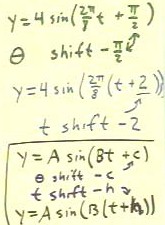 y=4 sin(2π/8 t + π/2)
θ shift -π/2
y=4 sin(2π/8 (t+2))
t shift -2
y = A sin(Bt + c)
θ shift -c
t shift -h
y=A sin(B(t+h))